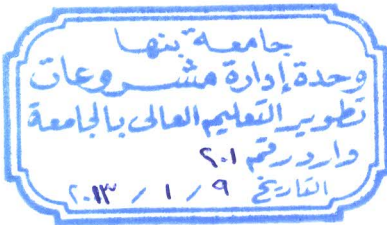 جامعة بنها
وحدة إدارة مشروعات
تطوير التعليم العالى بالجامعة
وارد رقم ٢٠١
التاريخ ٩ / ١ / ٢٠١٣